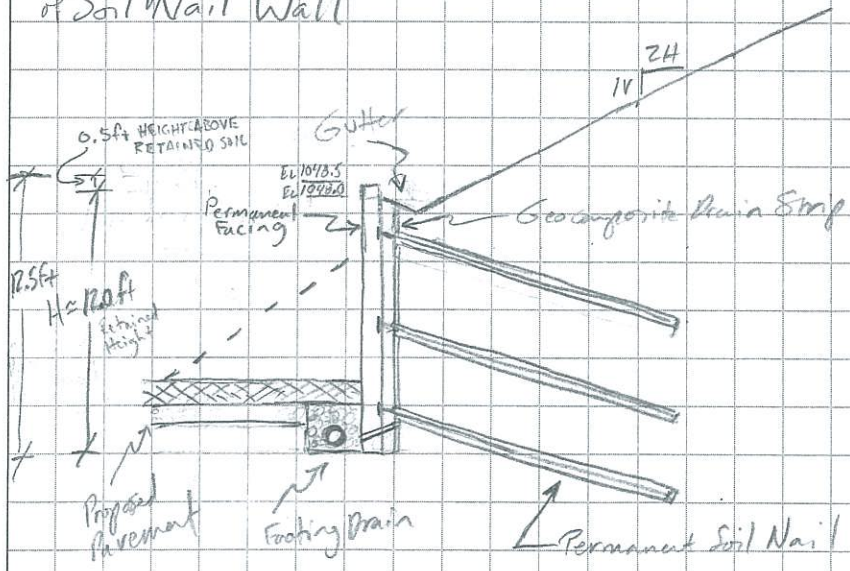 of Soil Nail Wall
2H
1V
0.5ft HEIGHT ABOVE
RETAINED SOIL
Gutter
EL 1048.5
EL 1048.0
Permanent
Facing
Geocomposite Drain Strip
12.5ft
H = 12.0ft
Retained
Height
Proposed
Pavement
Footing Drain
Permanent Soil Nail